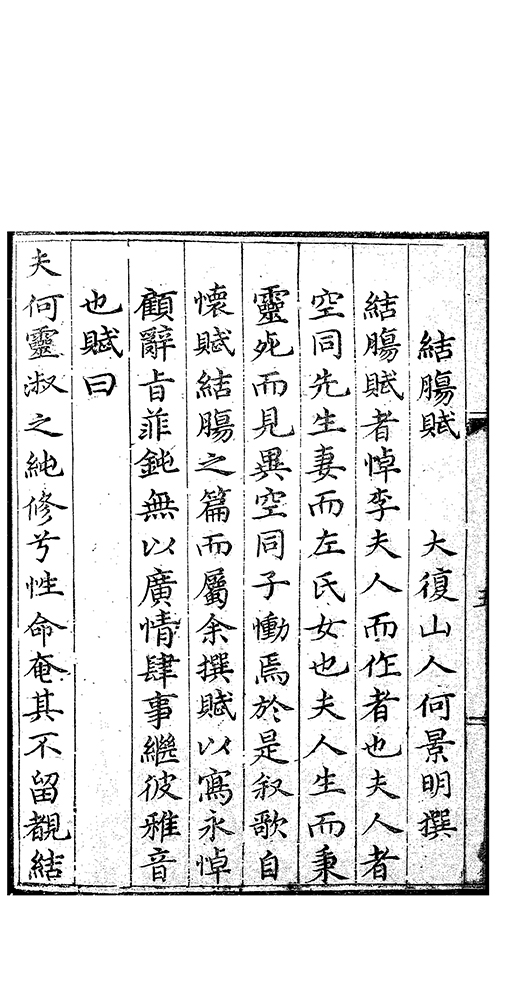 結膓賦　大復山人何景明撰
結膓賦者悼李夫人而作者也夫人者
空同先生妻而左氏女也夫人生而秉
靈死而見異空同子慟焉於是叙歌自
懷賦結膓之篇而屬余撰賦以寫永悼
顧辭㫖菲鈍無以廣情肆事繼彼雅音
也賦曰
夫何靈淑之純修兮性命奄其不留覩結